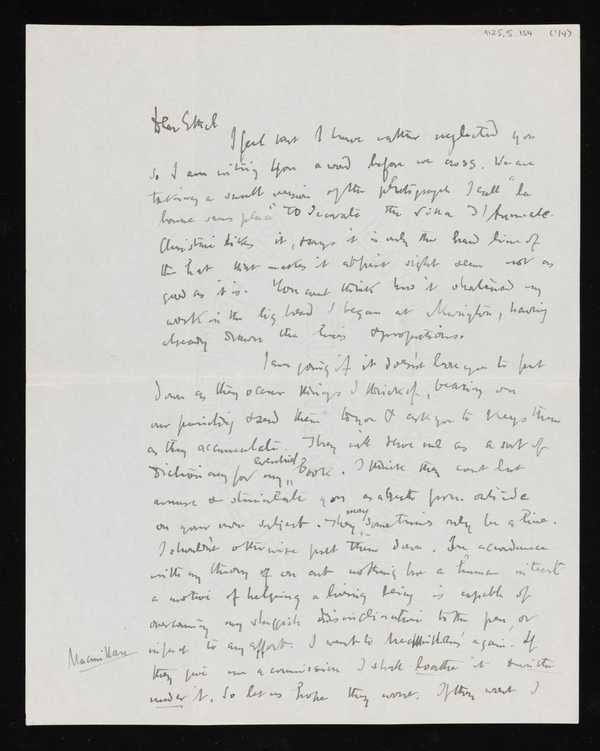 9125.5.154 (1/4)
Dear Ethel
I feel that I have rather neglected you
so I am writing you a word before we cross. We are
taking a small version of the photograph I call "la
bonne sans place" to decorate the Villa d'
Christine likes it, says it is only the hard line of
the hat that makes it at first sight seem not as
good as it is. You can't think how it shortened my
work in the big head I began at Newington, having
already drawn the lines & proportions.
I am going if it doesn't bore you to put
down as they occur things I think of, bearing on
our painting & send them to you & ask you to keep them
as they accumulate. They will serve me as a sort of
Dictionary for my eventual Book. I think they can't but
amuse & stimulate you as objects from outside
on your own subject. They may sometimes only be a line.
I shouldn't otherwise put them down. In accordance
with my theory of our art nothing but a human interest
a motive of helping a living being is capable of
overcoming my sluggish disinclination to the pen, or
infact to any effort. I went to Macmillans again. If
Macmillans
they give me a commission I shall loathe it & writhe
under it. So let us hope they won't. If they won't I